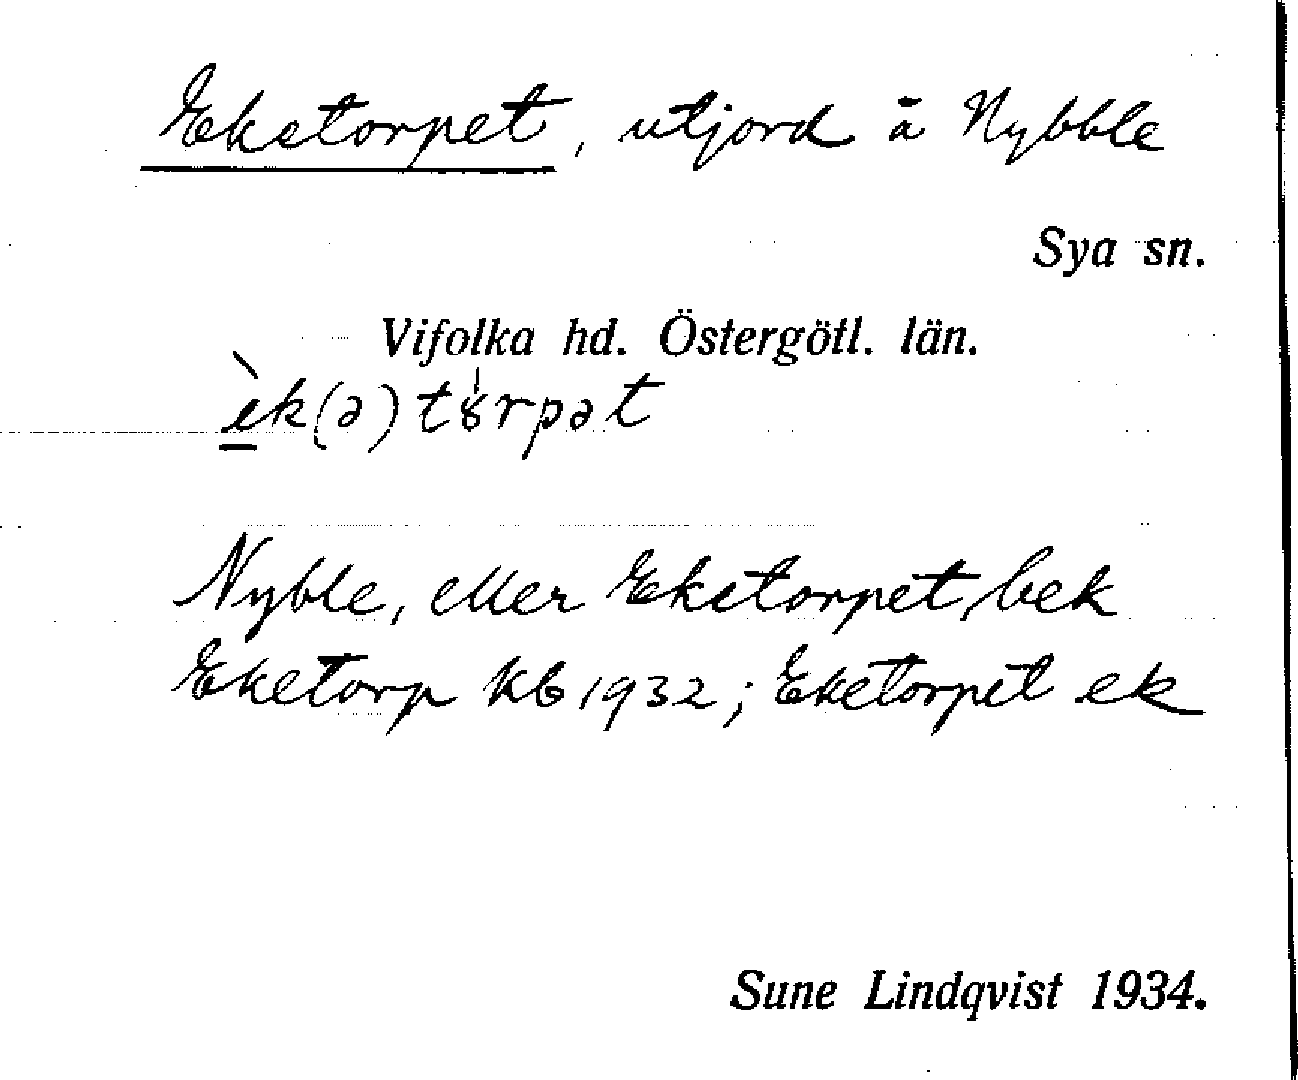 Eketorpet, utjord å Nybble
Sya sn.
Vifolka hd. Östergötl. län.
èk(ə)tȣrpət
Nyble, eller Eketorpet, bek
Eketorp kb 1932; Eketorpet ek
Sune Lindqvist 1934.